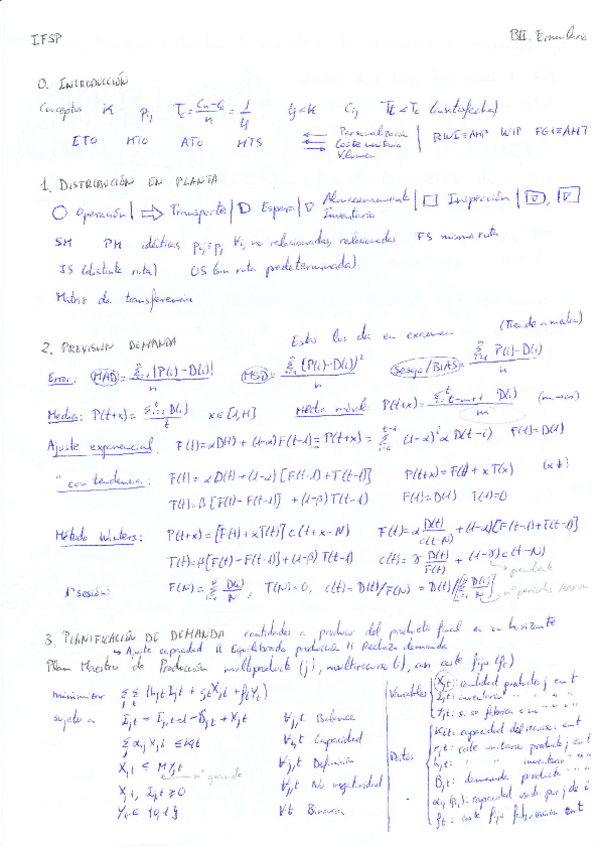 IFSP BII. Formulario
0. INTRODUCCIÓN
Conceptos K Pij Tc = (Cn-C0)/n = 1/tf tf<K Cij
ETO MTO ATO MTS
Personalización
Coste unitario
Volumen
RWI≡AMP WIP FGI≡AMT
1. DISTRIBUCIÓN EN PLANTA
○ Operación | ⇨ Transporte | D Espera | ▽ Almacenamiento Inventario | □ Inspección |
SM PM idénticas Pij=Pj ∀i, no relacionadas, relacionadas FS misma ruta
JS (distinta ruta) OS (sin ruta predeterminada)
Matriz de transferencia
2. PREVISIÓN DEMANDA Estas las da en examen (Tiende a media)
Error: MAD = Σ|P(i)-D(i)|/n MSD = Σ(P(i)-D(i))²/n Sesgo/BIAS = Σ P(i)-D(i)/n
Media: P(t+x) = Σ D(i)/t x∈[1,H] Media móvil: P(t+x) = Σ D(i)/m
Ajuste exponencial: F(t)=αD(t)+(1-α)F(t-1) = P(t+x) = Σ (1-α)^i α D(t-i) F(1)=D(1)
" con tendencia: F(t)=αD(t)+(1-α)[F(t-1)+T(t-1)] P(t+x)=F(t)+xT(x)
T(t)=β[F(t)-F(t-1)]+(1-β)T(t-1) F(1)=D(1) T(1)=0
Método Winters: P(t+x)=[F(t)+xT(t)]c(t+x-N) F(t)=α D(t)/c(t-N)+(1-α)[F(t-1)+T(t-1)]
T(t)=β[F(t)-F(t-1)]+(1-β)T(t-1) c(t)=γ D(t)/F(t)+(1-γ)c(t-N)
1ª sesión: F(N)=Σ D(i)/N, T(N)=0, c(t)=D(t)/F(N)=D(t)/Σ D(i)/N
3. PLANIFICACIÓN DE DEMANDA cantidades a producir del producto final en un horizonte
↳ Ajuste capacidad || Equilibrado producción || Rechazo demanda
Plan Maestro de Producción multiproducto (j), multirecurso (i), con coste fijo (ft)
minimizar ΣΣ(hjt Ijt + cjt Xjt + ft Yt)
sujeto a Ijt = Ij,t-1 - Djt + Xjt ∀j,t Balance
Σ αij Xjt ≤ Kit ∀i,t Capacidad
Xjt ≤ M Yjt ∀j,t Definición
nº grande
Xjt, Ijt ≥ 0 ∀j,t No negatividad
Yt ∈ {0,1} ∀t Binaria
Variables
Xjt: cantidad producto j en t
Ijt: inventario " " "
Datos
Kit: capacidad del recurso i en t
cjt: coste unitario producto j en t
hjt: " inventario " "
Djt: demanda producto " "
ft: coste fijo fabricación en t